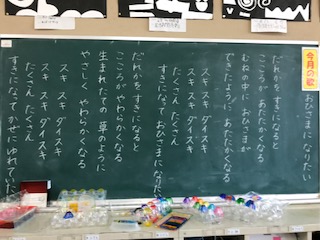 今月の歌
おひさまに なりたい
だれかを すきになると
こころが あたたかくなる
むねの中に おひさまが
できたように あたたかくなる
スキ スキ ダイスキ
たくさん たくさん
すきになって おひさまに なりたい
だれかを すきになると
こころが やわらかくなる
生まれたての 草のように
やさしく やわらかくなる
スキ スキ ダイスキ
スキ スキ ダイスキ
たくさん たくさん
すきになって かぜに ゆれていたい